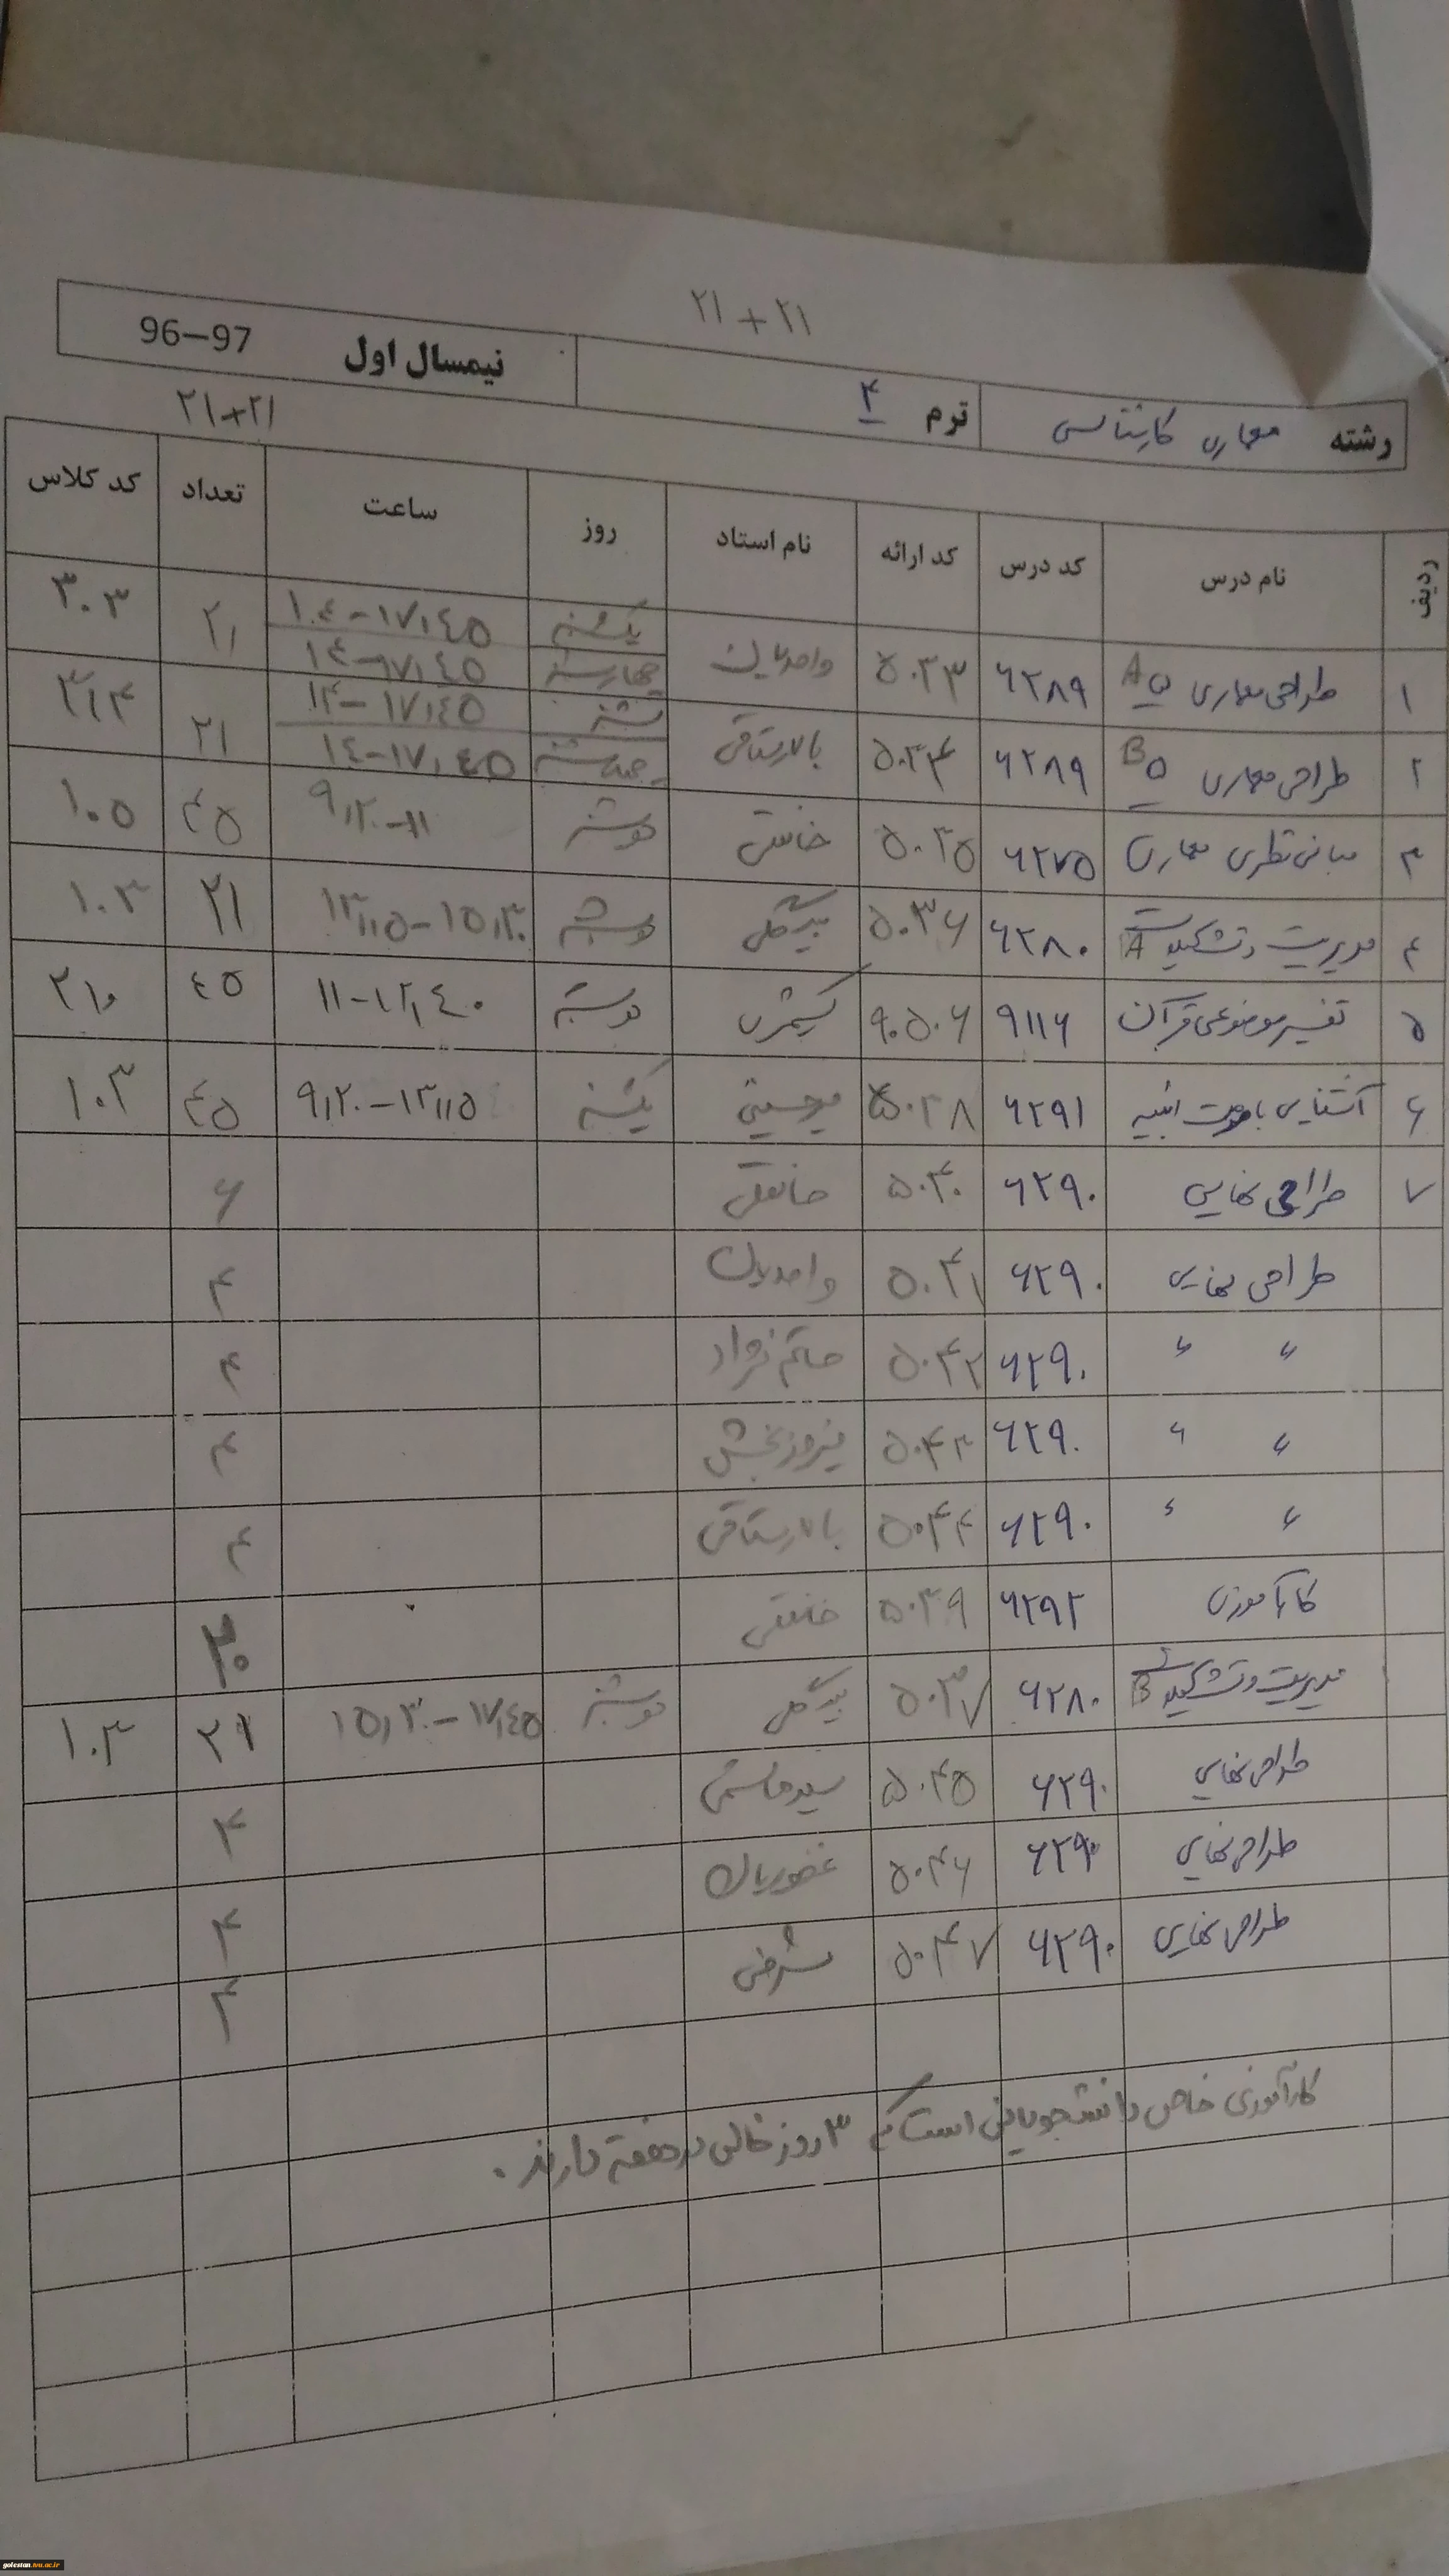 ۲۱+۲۱
رشته معماری کارشناسی ترم ۴ نیمسال اول 96–97
۲۱+۲۱
ردیف نام درس کد درس کد ارائه نام استاد روز ساعت تعداد کد کلاس
۱ طراحی معماری ۵ A ۶۲۸۹ ۵۰۳۳ واحدیان یکشنبه چهارشنبه ۱۴-۱۷,۴۵ ۲۱ ۳۰۳
۲ طراحی معماری ۵ B ۶۲۸۹ ۵۰۳۴ بالارستاقی ۱۴-۱۷,۴۵ ۱۴-۱۷,۴۵ ۲۱ ۳۱۴
۳ مبانی نظری معماری ۶۲۷۵ ۵۰۳۵ دوشنبه ۹,۲۰-۱۱ ۴۵ ۱۰۵
۴ مدیریت و تشکیلات A ۶۲۸۰ ۵۰۳۶ بیگلی دوشنبه ۱۳,۱۵-۱۵,۳۰ ۲۱ ۱۰۳
۵ تفسیر موضوعی قرآن ۹۱۱۶ ۹۰۵۰۶ دوشنبه ۱۱-۱۲,۴۰ ۴۵ ۲۱۰
۶ آشنایی با مرمت ابنیه ۶۲۹۱ ۵۰۳۸ میرحسینی یکشنبه ۹,۲۰-۱۳,۱۵ ۴۵ ۱۰۳
۷ طراحی نهایی ۶۲۹۰ ۵۰۴۰ خانقلی ۶
طراحی نهایی ۶۲۹۰ ۵۰۴۱ واحدیان ۴
〃 〃 ۶۲۹۰ ۵۰۴۲ حاتم نژاد ۴
〃 〃 ۶۲۹۰ ۵۰۴۳ فیروزبخش ۴
〃 〃 ۶۲۹۰ ۵۰۴۴ بالارستاقی ۴
کارآموزی ۶۲۹۲ ۵۰۳۹ خانقلی
مدیریت و تشکیلات B ۶۲۸۰ ۵۰۳۷ بیگلی دوشنبه ۱۵,۳۰-۱۷,۴۵ ۲۱ ۱۰۳
طراحی نهایی ۶۲۹۰ ۵۰۴۵ سیدهاشمی ۴
طراحی نهایی ۶۲۹۰ ۵۰۴۶ غفوریان ۴
طراحی نهایی ۶۲۹۰ ۵۰۴۷ شرفی ۴
کارآموزی خاص دانشجویانی است که ۳ روز خالی در هفته دارند.
golestan.tvu.ac.ir